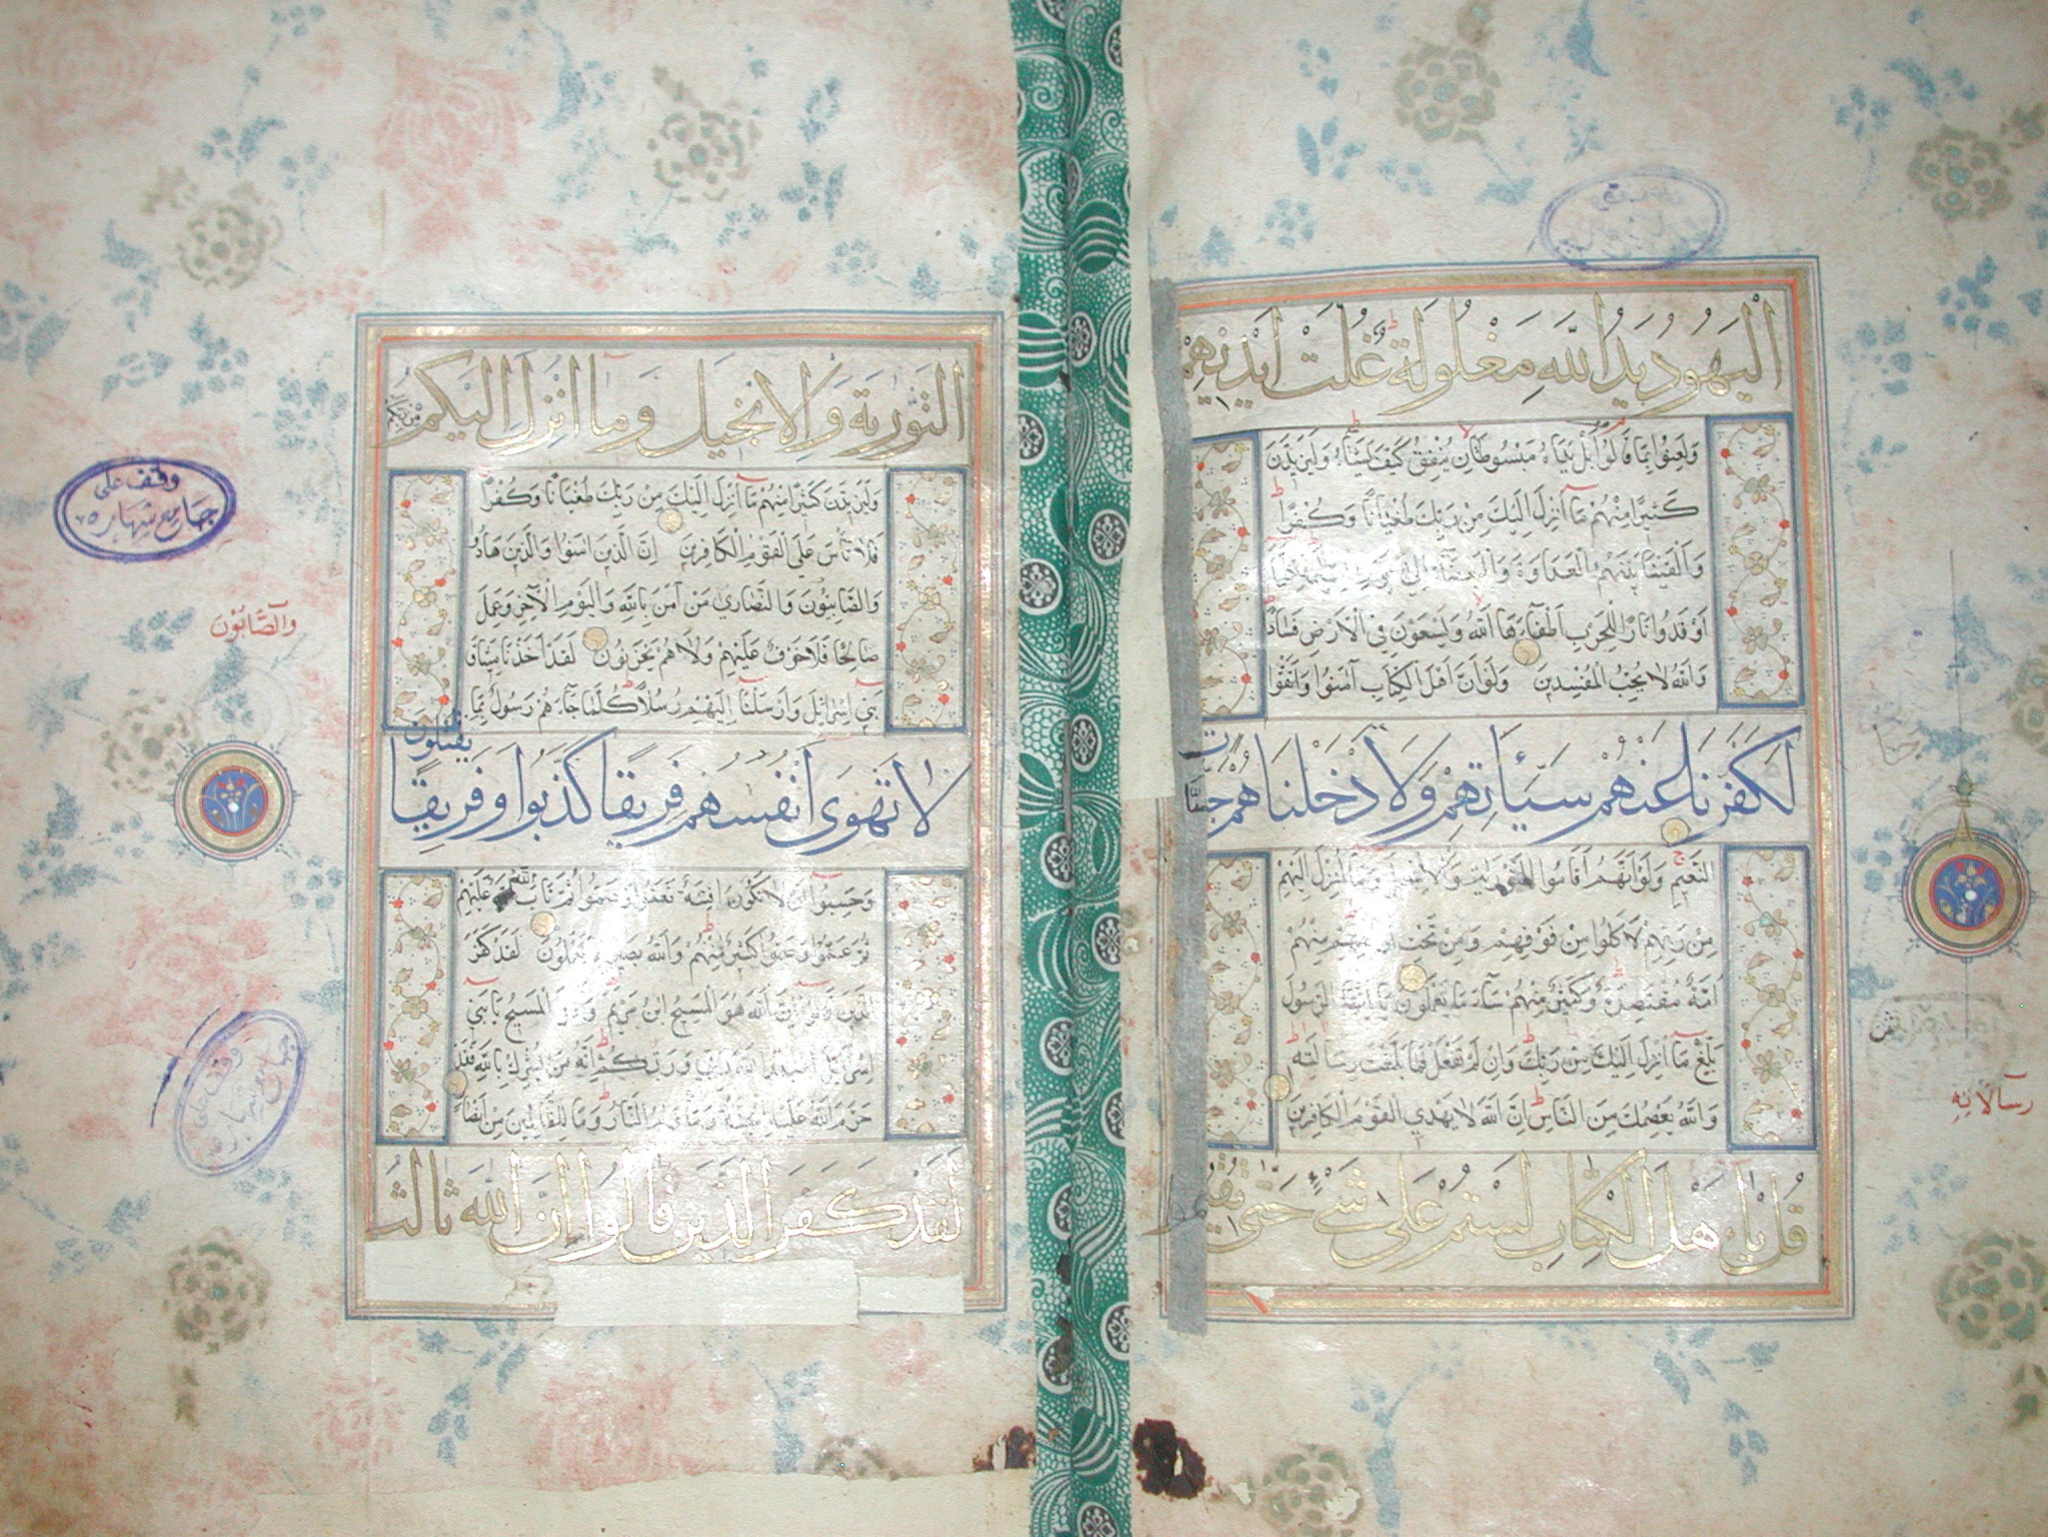 اليهود يد الله مغلولة غلت ايديهم
ولعنوا بما قالوا بل يداه مبسوطتان ينفق كيف يشاء وليزيدن
كثيرا منهم ما انزل اليك من ربك طغيانا وكفرا
والقينا بينهم العداوة والبغضاء الى يوم القيمة كلما
اوقدوا نارا للحرب اطفاءها الله ويسعون في الارض فسادا
والله لا يحب المفسدين ولو ان اهل الكتاب آمنوا واتقوا
لكفرنا عنهم سيئاتهم ولادخلناهم جنات
النعيم ولو انهم اقاموا التورية والانجيل وما انزل اليهم
من ربهم لاكلوا من فوقهم ومن تحت ارجلهم منهم
امة مقتصدة وكثير منهم ساء ما يعملون يا ايها الرسول
بلغ ما انزل اليك من ربك وان لم تفعل فما بلغت رسالته
والله يعصمك من الناس ان الله لا يهدي القوم الكافرين
قل يا اهل الكتاب لستم على شيء حتى تقيموا
رسالاته
التورية والانجيل وما انزل اليكم من ربكم
وليزيدن كثيرا منهم ما انزل اليك من ربك طغيانا وكفرا
فلا تأس على القوم الكافرين ان الذين امنوا والذين هادوا
والصابئون والنصارى من آمن بالله واليوم الآخر وعمل
صالحا فلا خوف عليهم ولا هم يحزنون لقد اخذنا ميثاق
بني اسرائيل وارسلنا اليهم رسلا كلما جاءهم رسول بما
لا تهوى انفسهم فريقا كذبوا وفريقا يقتلون
وحسبوا ان لا تكون فتنة فعموا وصموا ثم تاب الله عليهم
ثم عموا وصموا كثير منهم والله بصير بما يعملون لقد كفر
الذين قالوا ان الله هو المسيح ابن مريم وقال المسيح يا بني
اسرائيل اعبدوا الله ربي وربكم انه من يشرك بالله فقد
حرم الله عليه الجنة ومأويه النار وما للظالمين من انصار
لقد كفر الذين قالوا ان الله ثالث
والصابون
وقف على
جامع شهار
وقف على